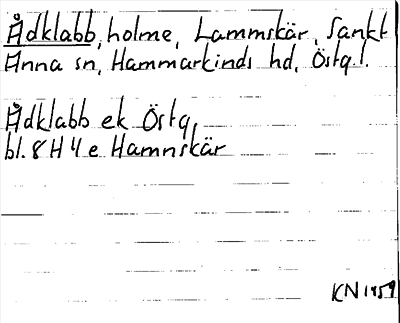 Ådklabb, holme, Lammskär, Sankt
Anna sn, Hammarkinds hd, Östg.l.
Ådklabb ek Östg.
bl. 8 H 4 e Hamnskär
KN 1959